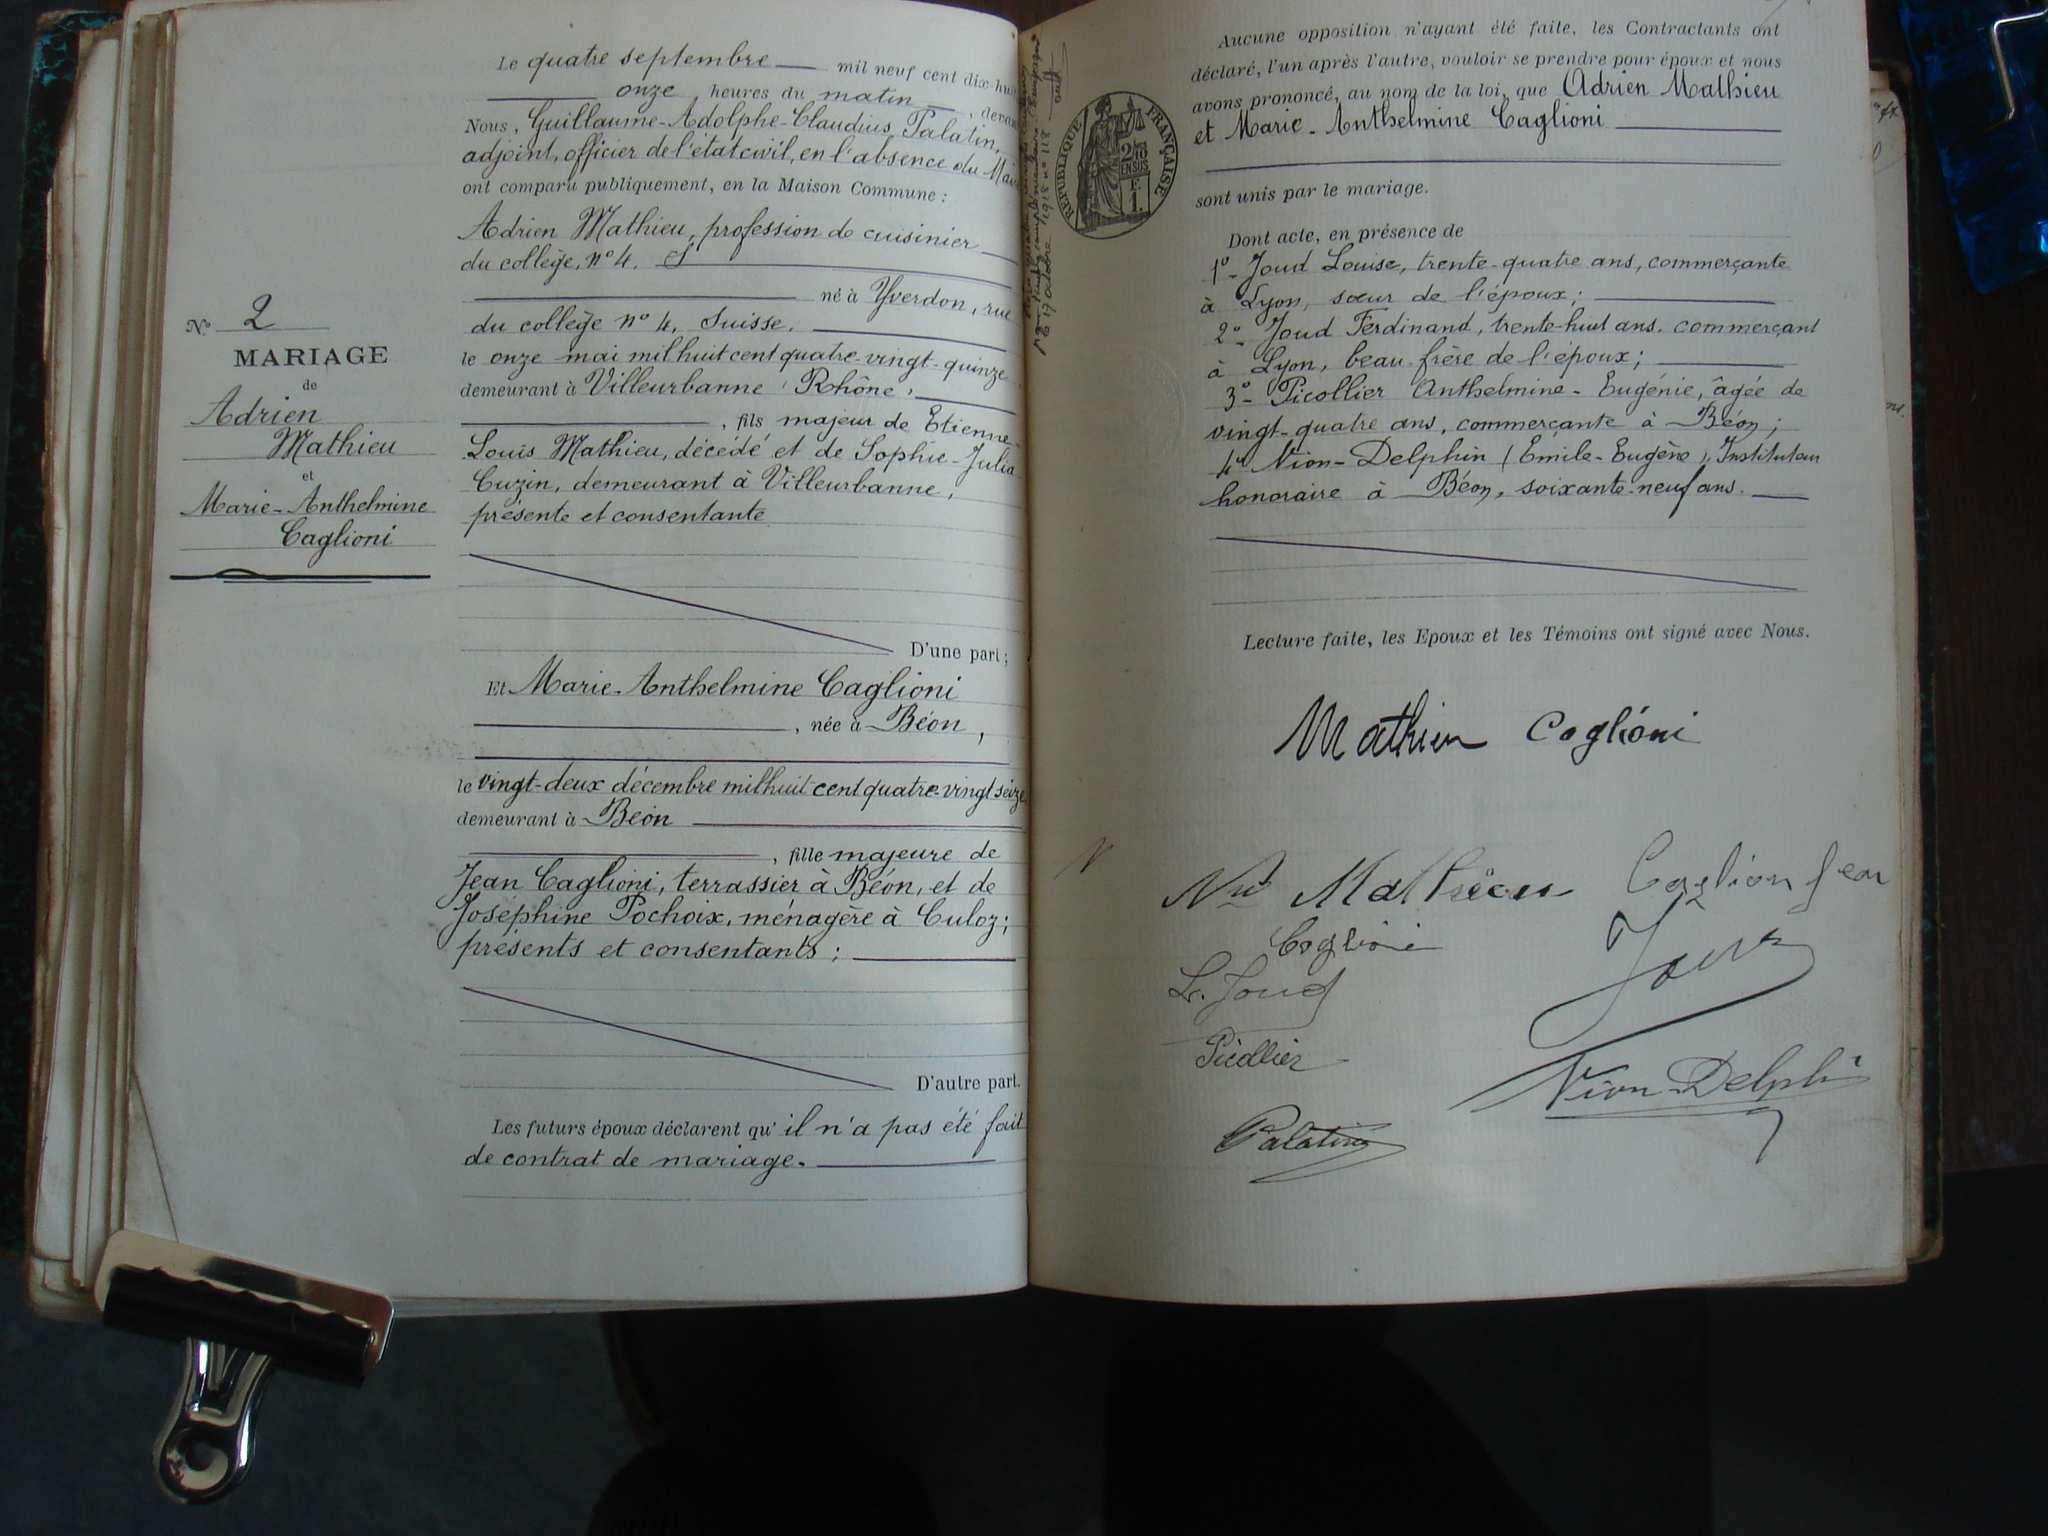 Le quatre septembre mil neuf cent dix-hui
onze, heures du matin, devan
Nous, Guillaume-Adolphe-Claudius Palatin,
adjoint, officier de l'état civil, en l'absence du Mai
ont comparu publiquement, en la Maison Commune :
Adrien Mathieu, profession de cuisinier
du collège, n° 4.
né à Yverdon, rue
du collège n° 4, Suisse.
le onze mai mil huit cent quatre-vingt-quinze
demeurant à Villeurbanne (Rhône)
, fils majeur de Etienne-
Louis Mathieu, décédé et de Sophie-Julia
Cuzin, demeurant à Villeurbanne,
présente et consentante
D'une part ;
Et Marie-Anthelmine Caglioni
, née à Béon,
le vingt-deux décembre mil huit cent quatre-vingt seize
demeurant à Béon
, fille majeure de
Jean Caglioni, terrassier à Béon, et de
Joséphine Pochoix, ménagère à Culoz ;
présents et consentants ;
D'autre part.
Les futurs époux déclarent qu'il n'a pas été fait
de contrat de mariage.
N° 2
MARIAGE
de
Adrien
Mathieu
et
Marie-Anthelmine
Caglioni
RÉPUBLIQUE FRANÇAISE
2/10
EN SUS
F.
1.
Le 17 octobre 1918 n° 118
Aucune opposition n'ayant été faite, les Contractants ont
déclaré, l'un après l'autre, vouloir se prendre pour époux et nous
avons prononcé, au nom de la loi, que Adrien Mathieu
et Marie-Anthelmine Caglioni
sont unis par le mariage.
Dont acte, en présence de
1°- Joud Louise, trente-quatre ans, commerçante
à Lyon, sœur de l'époux ;
2°- Joud Ferdinand, trente-huit ans, commerçant
à Lyon, beau-frère de l'époux ;
3°- Picollier Anthelmine-Eugénie, âgée de
vingt-quatre ans, commerçante à Béon ;
4° Nion-Delphin (Emile-Eugène), Instituteur
honoraire à Béon, soixante-neuf ans.
Lecture faite, les Epoux et les Témoins ont signé avec Nous.
Mathieu Caglióni
Mathieu Caglion Jean
Caglioni
L. Joud
Picollier
Nion-Delphi
Palatin